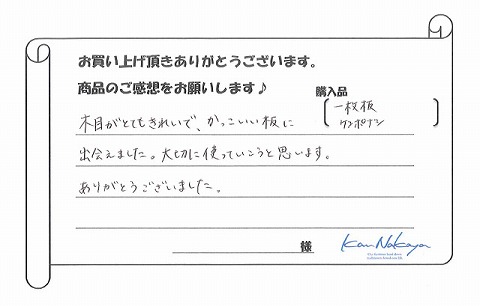 お買い上げ頂きありがとうございます。
商品のご感想をお願いします♪
購入品
一枚板
ケンポナシ
木目がとてもきれいで、かっこいい板に
出会えました。大切に使っていこうと思います。
ありがとうございました。
様
Kan Nakaya